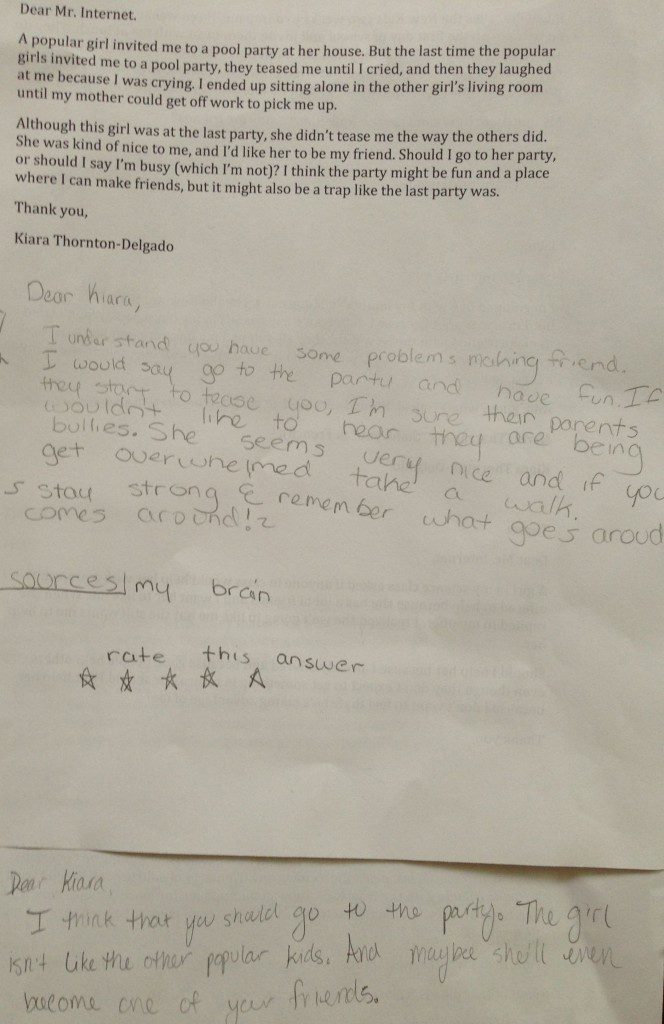 Dear Mr. Internet.
A popular girl invited me to a pool party at her house. But the last time the popular
girls invited me to a pool party, they teased me until I cried, and then they laughed
at me because I was crying. I ended up sitting alone in the other girl's living room
until my mother could get off work to pick me up.
Although this girl was at the last party, she didn't tease me the way the others did.
She was kind of nice to me, and I'd like her to be my friend. Should I go to her party,
or should I say I'm busy (which I'm not)? I think the party might be fun and a place
where I can make friends, but it might also be a trap like the last party was.
Thank you,
Kiara Thornton-Delgado
Dear Kiara,
I understand you have some problems making friend.
I would say go to the party and have fun. If
they start to tease you, I'm sure their parents
wouldn't like to hear they are being
bullies. She seems very nice and if you
get overwhelmed take a walk.
stay strong & remember what goes aroud
comes around!
sources/ my brain
rate this answer
Dear Kiara,
I think that you should go to the party. The girl
isn't like the other popular kids. And maybee she'll even
become one of your friends.